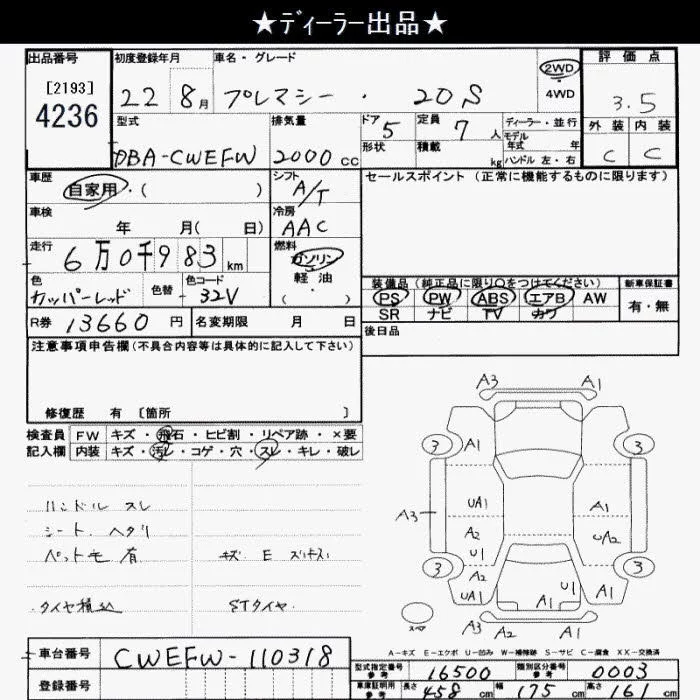 ★ディーラー出品★
出品番号 初度登録年月 車名・グレード 2WD 評価点
[2193] 22 8月 プレマシー・20S 4WD 3.5
4236 型式 排気量 ドア 定員 ディーラー・並行 外装 内装
5 7人 モデル年式 年
DBA-CWEFW 2000cc 形状 積載 kg ハンドル 左・右 C C
車歴 シフト セールスポイント(正常に機能するものに限ります)
自家用・( ) A/T
車検 冷房
年 月( 日) AAC
走行 燃料
6万0千983km ガソリン
軽油
色 色替 色コード (・) 装備品(純正品に限り○をつけてください) 新車保証書
カッパーレッド 32V PS PW ABS エアB AW 有・無
R券 13660円 名変期限 月 日 SR ナビ TV カワ
注意事項申告欄(不具合内容等は具体的に記入して下さい) 後日品
修復歴 有 〔箇所 〕
検査員 FW キズ・飛石・ヒビ割・リペア跡・×要
記入欄 内装 キズ・汚レ・コゲ・穴・スレ・キレ・破レ
A3 A1
3 A1 3
ハンドル スレ
UA1 A1
シート ヘタリ
A3 A2 UA2
ペットモ 有 キズ E
U1
3 A2 3
タイヤ積込 STタイヤ
UA1 U1 A1
スペア A3 A2 A1
A-キズ E-エクボ U-凹み W-補修跡 S-サビ C-腐食 XX-交換済
車台番号 CWEFW-110318 型式指定番号 参考 16500 類別区分番号 参考 0003
登録番号 車庫証明用 参考 長さ 458cm 幅 175cm 高さ 161cm